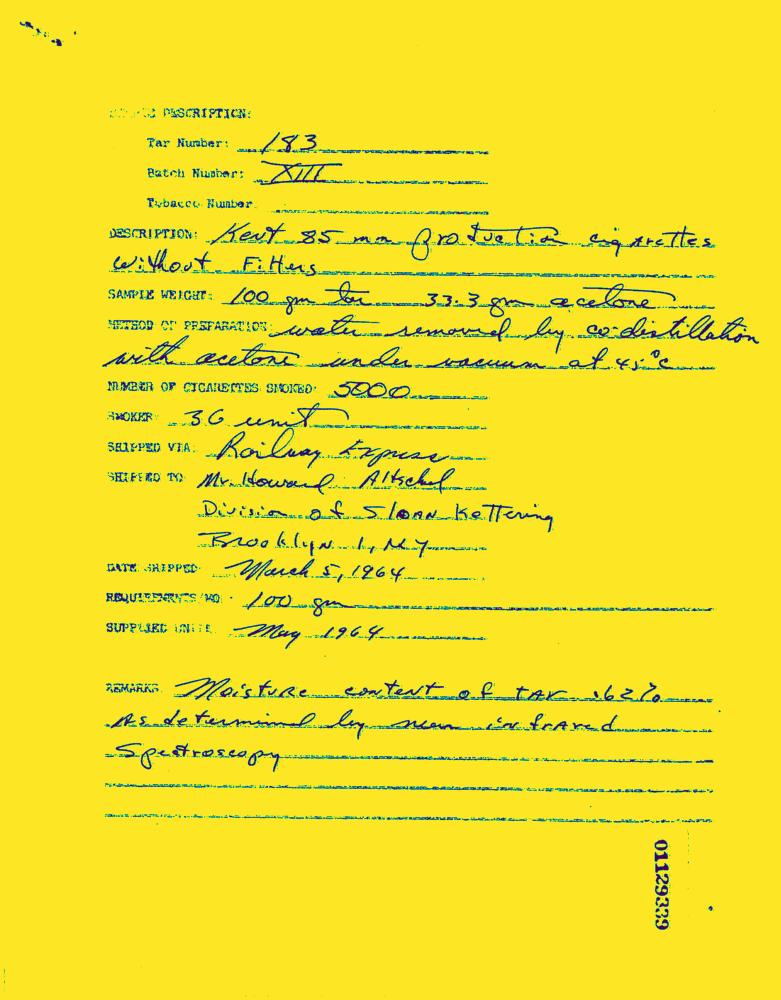 DESCRIPTION:
Tar Number: 183
Batch Number: XIII
Tobacco Number
DESCRIPTION: Kent 85 mm production cigarettes
without Filters
SAMPLE WEIGHT: 100 gm tar 33.3 gm acetone
METHOD OF PREPARATION: water removed by co-distillation
with acetone under vacuum at 45°C
NUMBER OF CIGARETTES SMOKED: 5000
SMOKER: 36 unit
SHIPPED VIA: Railway Express
SHIPPED TO: Mr. Howard Altschul
Division of Sloan Kettering
Brooklyn 1, NY
DATE SHIPPED: March 5, 1964
REQUIREMENTS/MO.: 100 gm
SUPPLIED UNTIL May 1964
REMARKS: Moisture content of tar .62%
As determined by near infrared
Spectroscopy
01129339